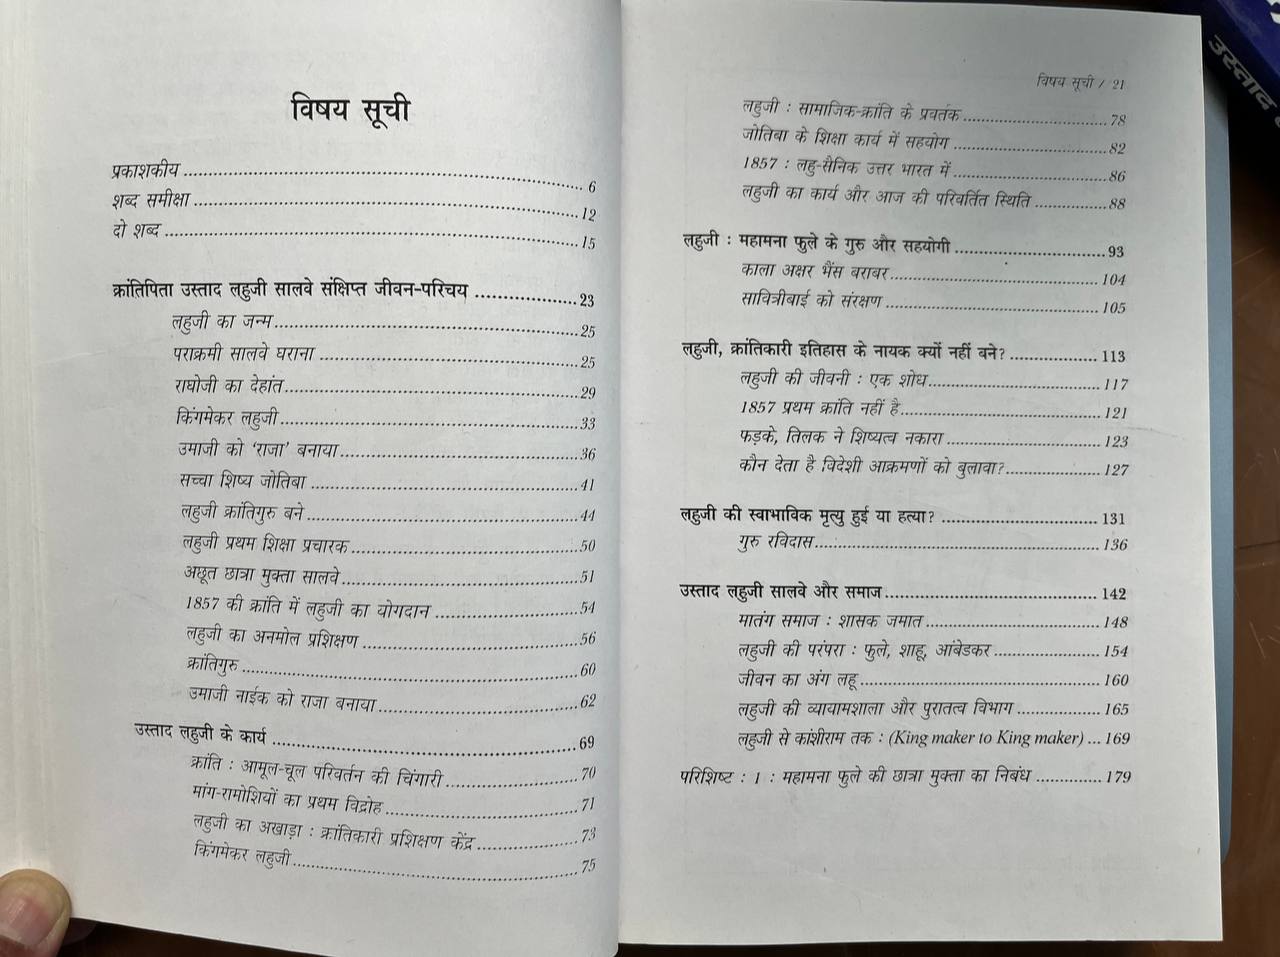 विषय सूची
प्रकाशकीय ........ 6
शब्द समीक्षा ........ 12
दो शब्द ........ 15
क्रांतिपिता उस्ताद लहुजी सालवे संक्षिप्त जीवन-परिचय ........ 23
लहुजी का जन्म ........ 25
पराक्रमी सालवे घराना ........ 25
राघोजी का देहांत ........ 29
किंगमेकर लहुजी ........ 33
उमाजी को ‘राजा’ बनाया ........ 36
सच्चा शिष्य जोतिबा ........ 41
लहुजी क्रांतिगुरु बने ........ 44
लहुजी प्रथम शिक्षा प्रचारक ........ 50
अछूत छात्रा मुक्ता सालवे ........ 51
1857 की क्रांति में लहुजी का योगदान ........ 54
लहुजी का अनमोल प्रशिक्षण ........ 56
क्रांतिगुरु ........ 60
उमाजी नाईक को राजा बनाया ........ 62
उस्ताद लहुजी के कार्य ........ 69
क्रांति : आमूल-चूल परिवर्तन की चिंगारी ........ 70
मांग-रामोशियों का प्रथम विद्रोह ........ 71
लहुजी का अखाड़ा : क्रांतिकारी प्रशिक्षण केंद्र ........ 73
किंगमेकर लहुजी ........ 75
विषय सूची / 21
लहुजी : सामाजिक-क्रांति के प्रवर्तक ........ 78
जोतिबा के शिक्षा कार्य में सहयोग ........ 82
1857 : लहु-सैनिक उत्तर भारत में ........ 86
लहुजी का कार्य और आज की परिवर्तित स्थिति ........ 88
लहुजी : महामना फुले के गुरु और सहयोगी ........ 93
काला अक्षर भैंस बराबर ........ 104
सावित्रीबाई को संरक्षण ........ 105
लहुजी, क्रांतिकारी इतिहास के नायक क्यों नहीं बने? ........ 113
लहुजी की जीवनी : एक शोध ........ 117
1857 प्रथम क्रांति नहीं है ........ 121
फड़के, तिलक ने शिष्यत्व नकारा ........ 123
कौन देता है विदेशी आक्रमणों को बुलावा? ........ 127
लहुजी की स्वाभाविक मृत्यु हुई या हत्या? ........ 131
गुरु रविदास ........ 136
उस्ताद लहुजी सालवे और समाज ........ 142
मातंग समाज : शासक जमात ........ 148
लहुजी की परंपरा : फुले, शाहू, आंबेडकर ........ 154
जीवन का अंग लहू ........ 160
लहुजी की व्यायामशाला और पुरातत्व विभाग ........ 165
लहुजी से कांशीराम तक : (King maker to King maker) ... 169
परिशिष्ट : 1 : महामना फुले की छात्रा मुक्ता का निबंध ........ 179
उस्ताद